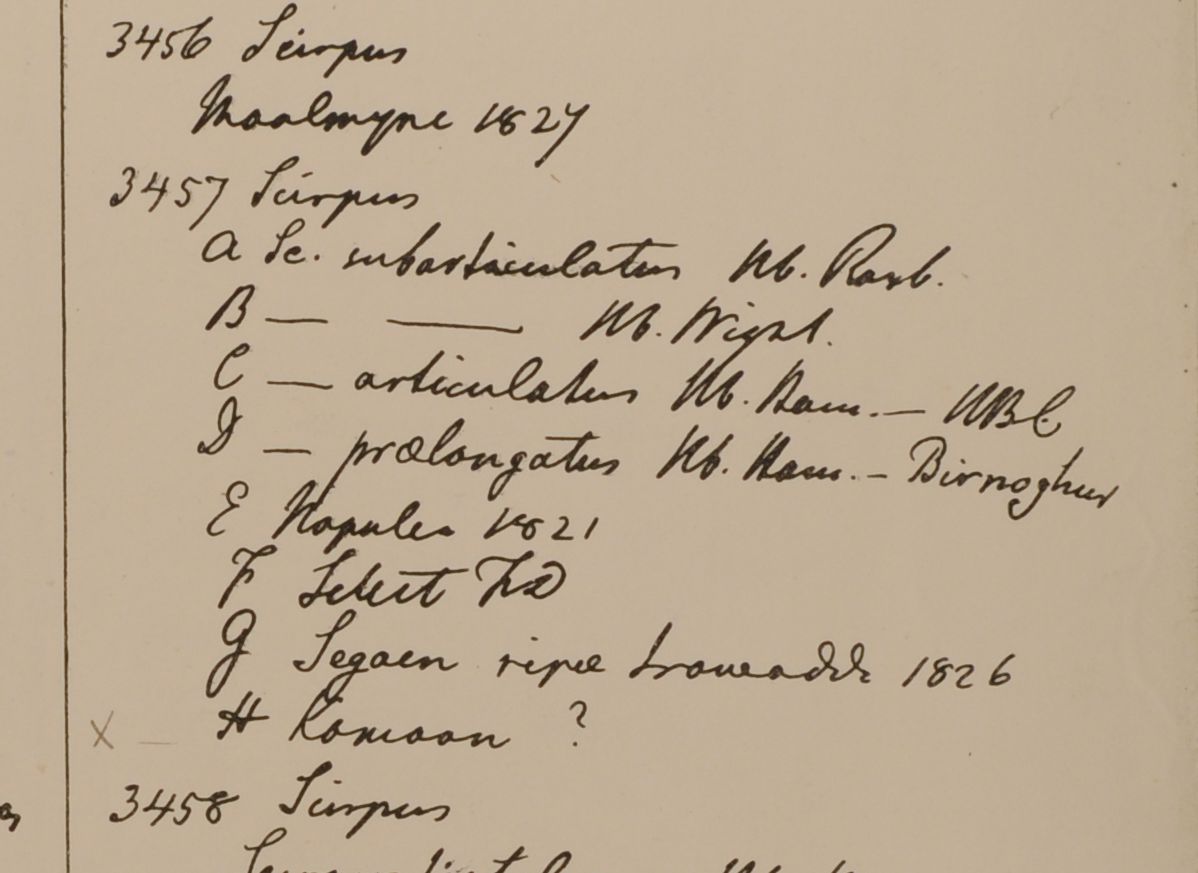 3456 Scirpus
Moalmyne 1827
3457 Scirpus
A Sc. subarticulatus Hb. Roxb.
B — — Hb. Wight.
C — articulatus Hb. Ham. — HBC
D — prælongatus Hb. Ham. — Birnoghur
E Napulea 1821
F Silhet FD
G Segaen ripæ Irawaddi 1826
X — H Kamaon ?
3458 Scirpus